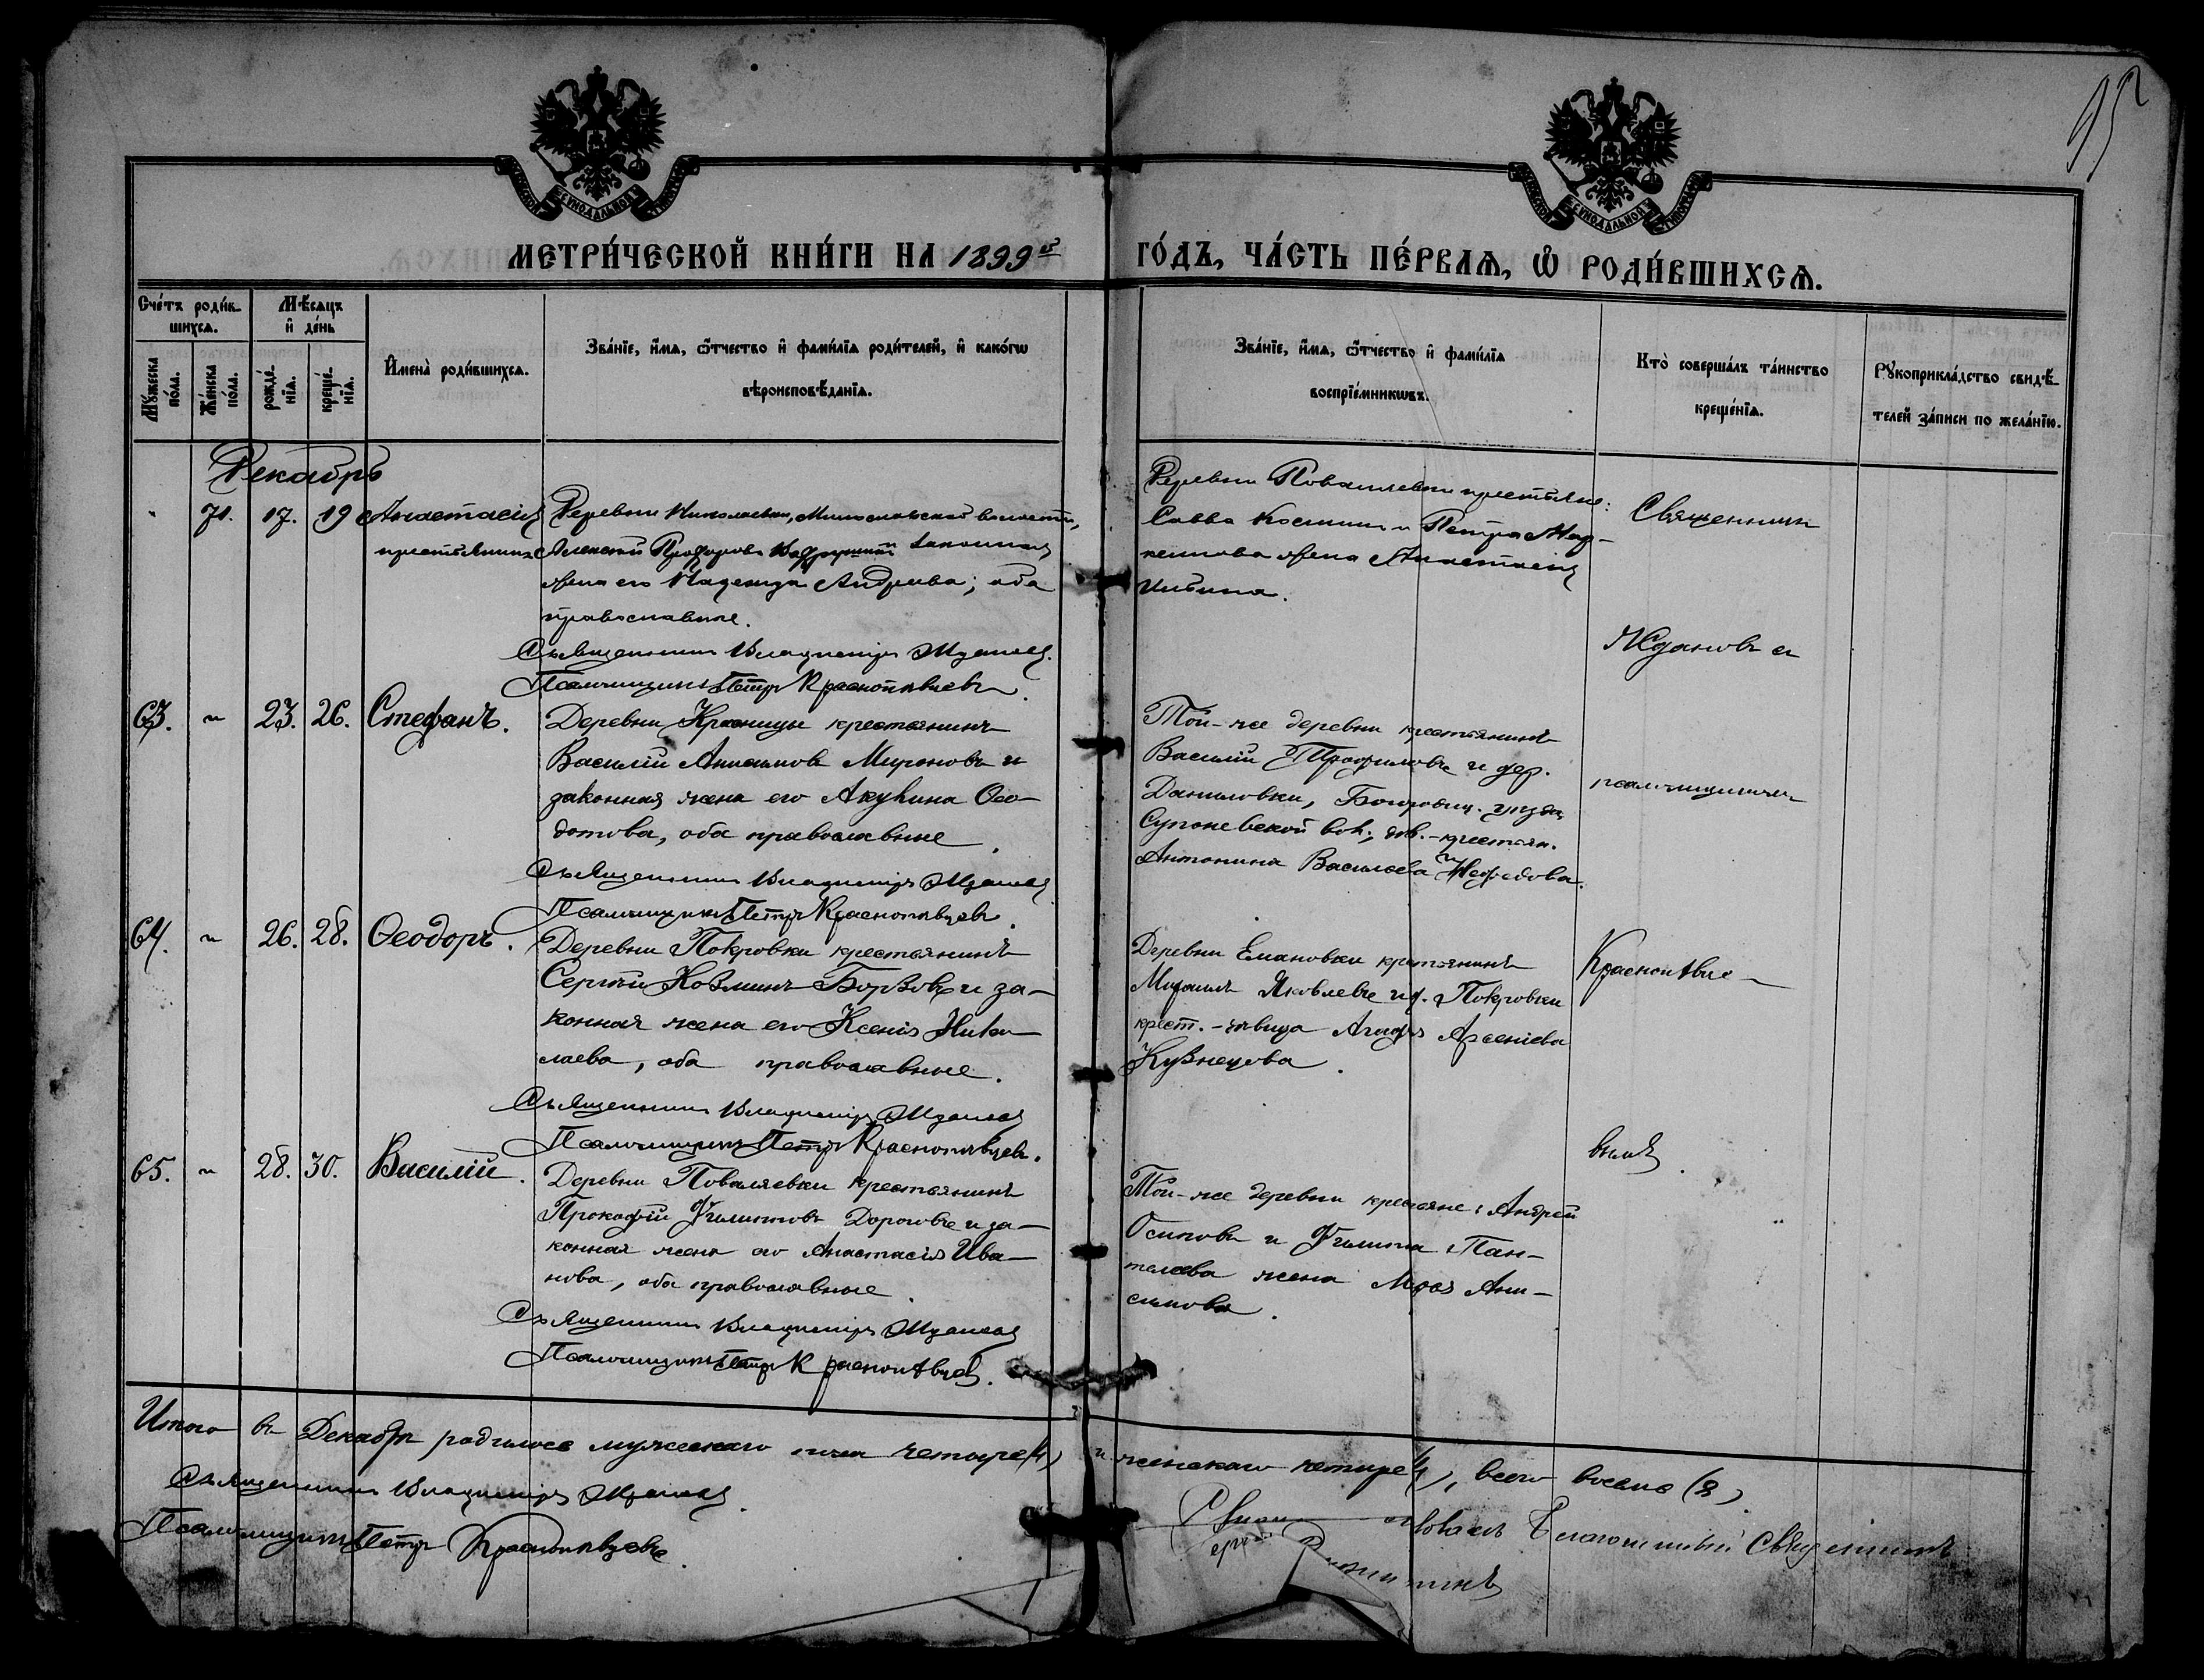 95
МЕТРИ́ЧЕСКОЙ КНИ́ГИ НА 1899й ГО́ДЪ, ЧА́СТЬ ПЕ́РВАѦ, Ѡ҆ РОДИ́ВШИХСѦ.
Сче́тъ роди́в-
шихсѧ.
Мѣ́сѧцъ
и҆ де́нь
Мꙋ́жеска
по́ла.
Же́нска
по́ла.
рожде́-
нїѧ.
креще́-
нїѧ.
И҆мена̀ роди́вшихсѧ.
Зва́нїе, и҆́мѧ, ѻ҆́тчество и҆ фами́лїѧ роди́телей, и҆ како́гѡ
вѣроисповѣ́данїѧ.
Зва́нїе, и҆́мѧ, ѻ҆́тчество и҆ фами́лїѧ
воспрїе́мникѡвъ.
Кто̀ соверша́лъ та́инство
креще́нїѧ.
Рꙋкоприкла́дство свидѣ́-
телей за́писи по жела́нїю.
Декабрь
71. 17. 19 Анастасія
крестьянина
Деревни Николаевки, волости,
Алексѣй законная
жена его Надежда Андреева; оба
православные.
Священникъ Владиміръ Ждановъ.
Псаломщикъ Петръ Краснопѣвцевъ.
Деревни Поваляевки крестьяне:
Савва Косминъ и Петра Мар-
келова жена Анастасія
Ильина.
Священникъ
Ждановъ съ
псаломщикомъ
Краснопѣвце-
вымъ.
63. " 23. 26. Стефанъ.
Деревни Красницы крестьянинъ
Василій Анисимовъ Мироновъ и
законная жена его Акулина Ѳео-
дотова, оба православные.
Священникъ Владиміръ Ждановъ
Псаломщикъ Петръ Краснопѣвцевъ.
Той-же деревни крестьянинъ
Василій Трофимовъ и дер.
Даниловки, Богородиц. уѣзда
Супоневской вол., дѣв.-крестьян.
Антонина Васильева Нефедова.
64. " 26. 28. Ѳеодоръ.
Деревни Покровки крестьянинъ
Сергѣй Козминъ Борзовъ и за-
конная жена его Ксенія Нико-
лаева, оба православные.
Священникъ Владиміръ Ждановъ
Псаломщикъ Петръ Краснопѣвцевъ.
Деревни Емановки крестьянинъ
Михаилъ Яковлевъ и д. Покровки
крест.-дѣвица Агафія Арсеніева
Кузнецова.
65. " 28. 30. Василій.
Деревни Поваляевки крестьянинъ
Прокофій Филипповъ Дороговъ и за-
конная жена его Анастасія Ива-
нова, оба православные.
Священникъ Владиміръ Ждановъ
Псаломщикъ Петръ Краснопѣвцевъ.
Той-же деревни крестьяне: Андрей
Осиповъ и Филиппа Пан-
телеева жена Анн-
симова.
Итого въ Декабрѣ родилось мужескаго пола четыре (4) и женскаго четыре (4), всего восемь (8).
Священникъ Владиміръ Ждановъ.
Псаломщикъ Петръ Краснопѣвцевъ.
Благочинный Священникъ